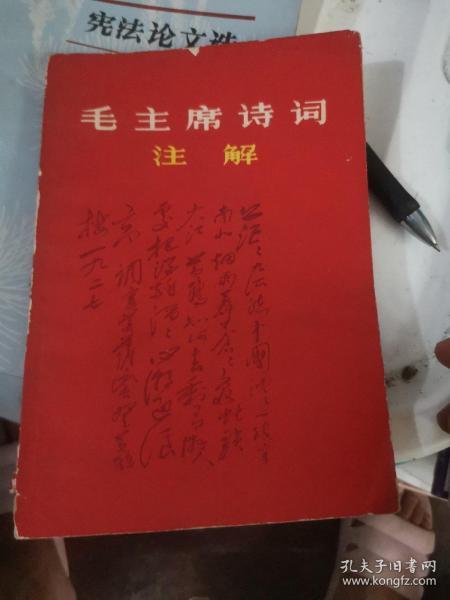 宪法论文选
毛主席诗词
注解
茫〻九派流中國沉〻一线穿
南北烟雨莽苍〻龟蛇锁
大江黄鹤知何去剩有游人
处把酒酹滔〻心潮逐浪
高 调寄菩萨蛮登黄鹤
楼一九二七
孔夫子旧书网
www.kongfz.com